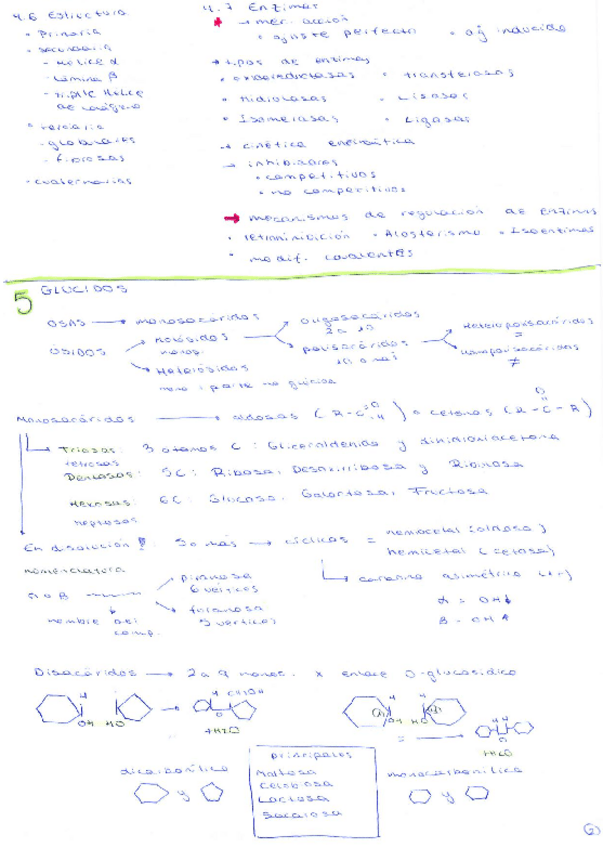 4.6 Estructura
• Primaria
• secundaria
- Hélice α
- Lámina β
- triple Hélice de colágeno
• terciaria
- globulares
- fibrosas
- cuaternarias
4.7 Enzimas
→ mec. acción
• ajuste perfecto • aj inducido
→ tipos de enzimas
• oxidoreductasas • transferasas
• Hidrolasas • Liasas
• Isomerasas • Ligasas
→ cinética enzimática
→ inhibidores
• competitivos
• no competitivos
→ mecanismos de regulación de enzimas
• retroinhibición • Alosterismo • Isoenzimas
• modif. covalentes
5 GLÚCIDOS
OSAS → monosacáridos
ÓSIDOS
Holósidos
monos.
Heterósidos
mono + parte no glúcida
oligosacáridos
2 a 10
polisacáridos
10 o más
Heteropolisacáridos
=
Homopolisacáridos
≠
Monosacáridos → aldosas (R-C=O -H) o cetonas (R-C-R)
O
Triosas: 3 átomos C: Gliceraldehído y dihidroxiacetona
tetrosas
Pentosas: 5C: Ribosa, Desoxirribosa y Ribulosa
Hexosas: 6C: Glucosa, Galactosa, Fructosa
heptosas
En disolución: 5 o más → cíclicos = hemiacetal (aldosa)
hemicetal (cetosa)
nomenclatura
→ carbono asimétrico
α o β
nombre del comp.
piranosa
6 vértices
furanosa
5 vértices
α = OH ↓
β - OH ↑
Disacáridos → 2 a 9 monos. x enlace O-glucosídico
H CH2OH
OH HO → O
+H2O
H H
OH HO
= → O
+H2O
dicarbonílico
y
principales
Maltosa
Celobiosa
Lactosa
Sacarosa
monocarbonílico
y
②